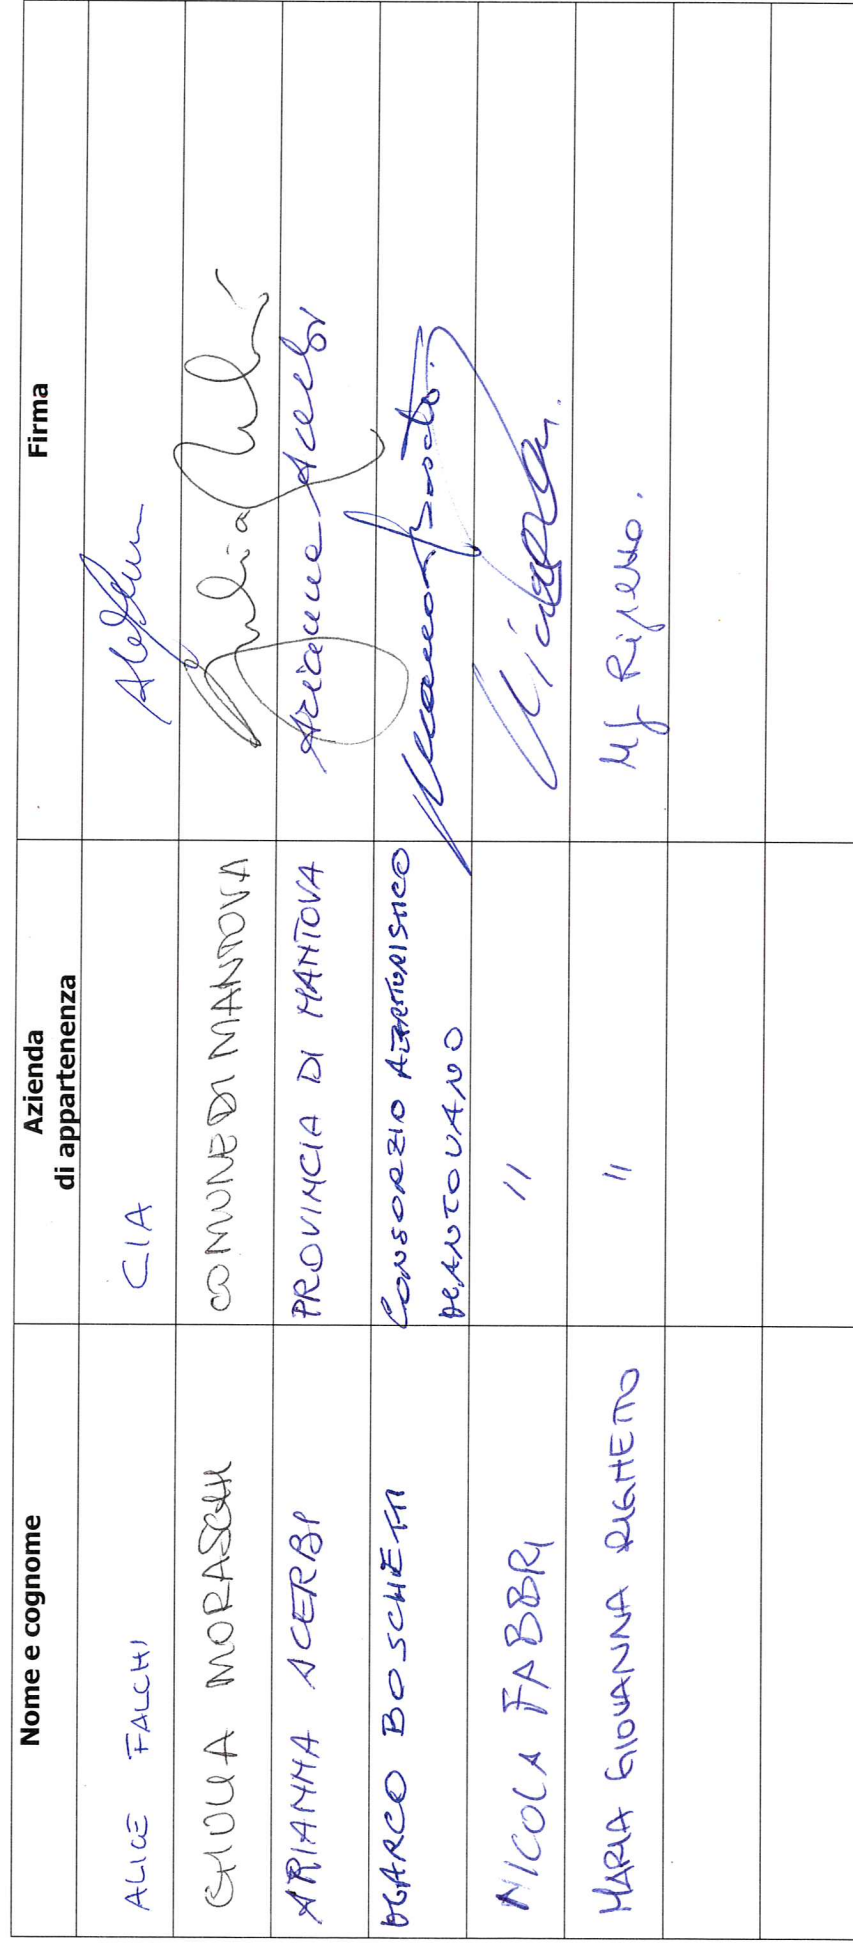 Nome e cognome
Azienda
di appartenenza
Firma
ALICE FALCHI
CIA
GIULIA MORASCHI
COMUNE DI MANTOVA
Giulia
ARIANNA ACERBI
PROVINCIA DI MANTOVA
Arianna Acerbi
MARCO BOSCHETTI
CONSORZIO AGRITURISTICO
MANTOVANO
Marco Boschetti
NICOLA FABBRI
"
MARIA GIOVANNA RIGHETTO
"
MG Righetto.